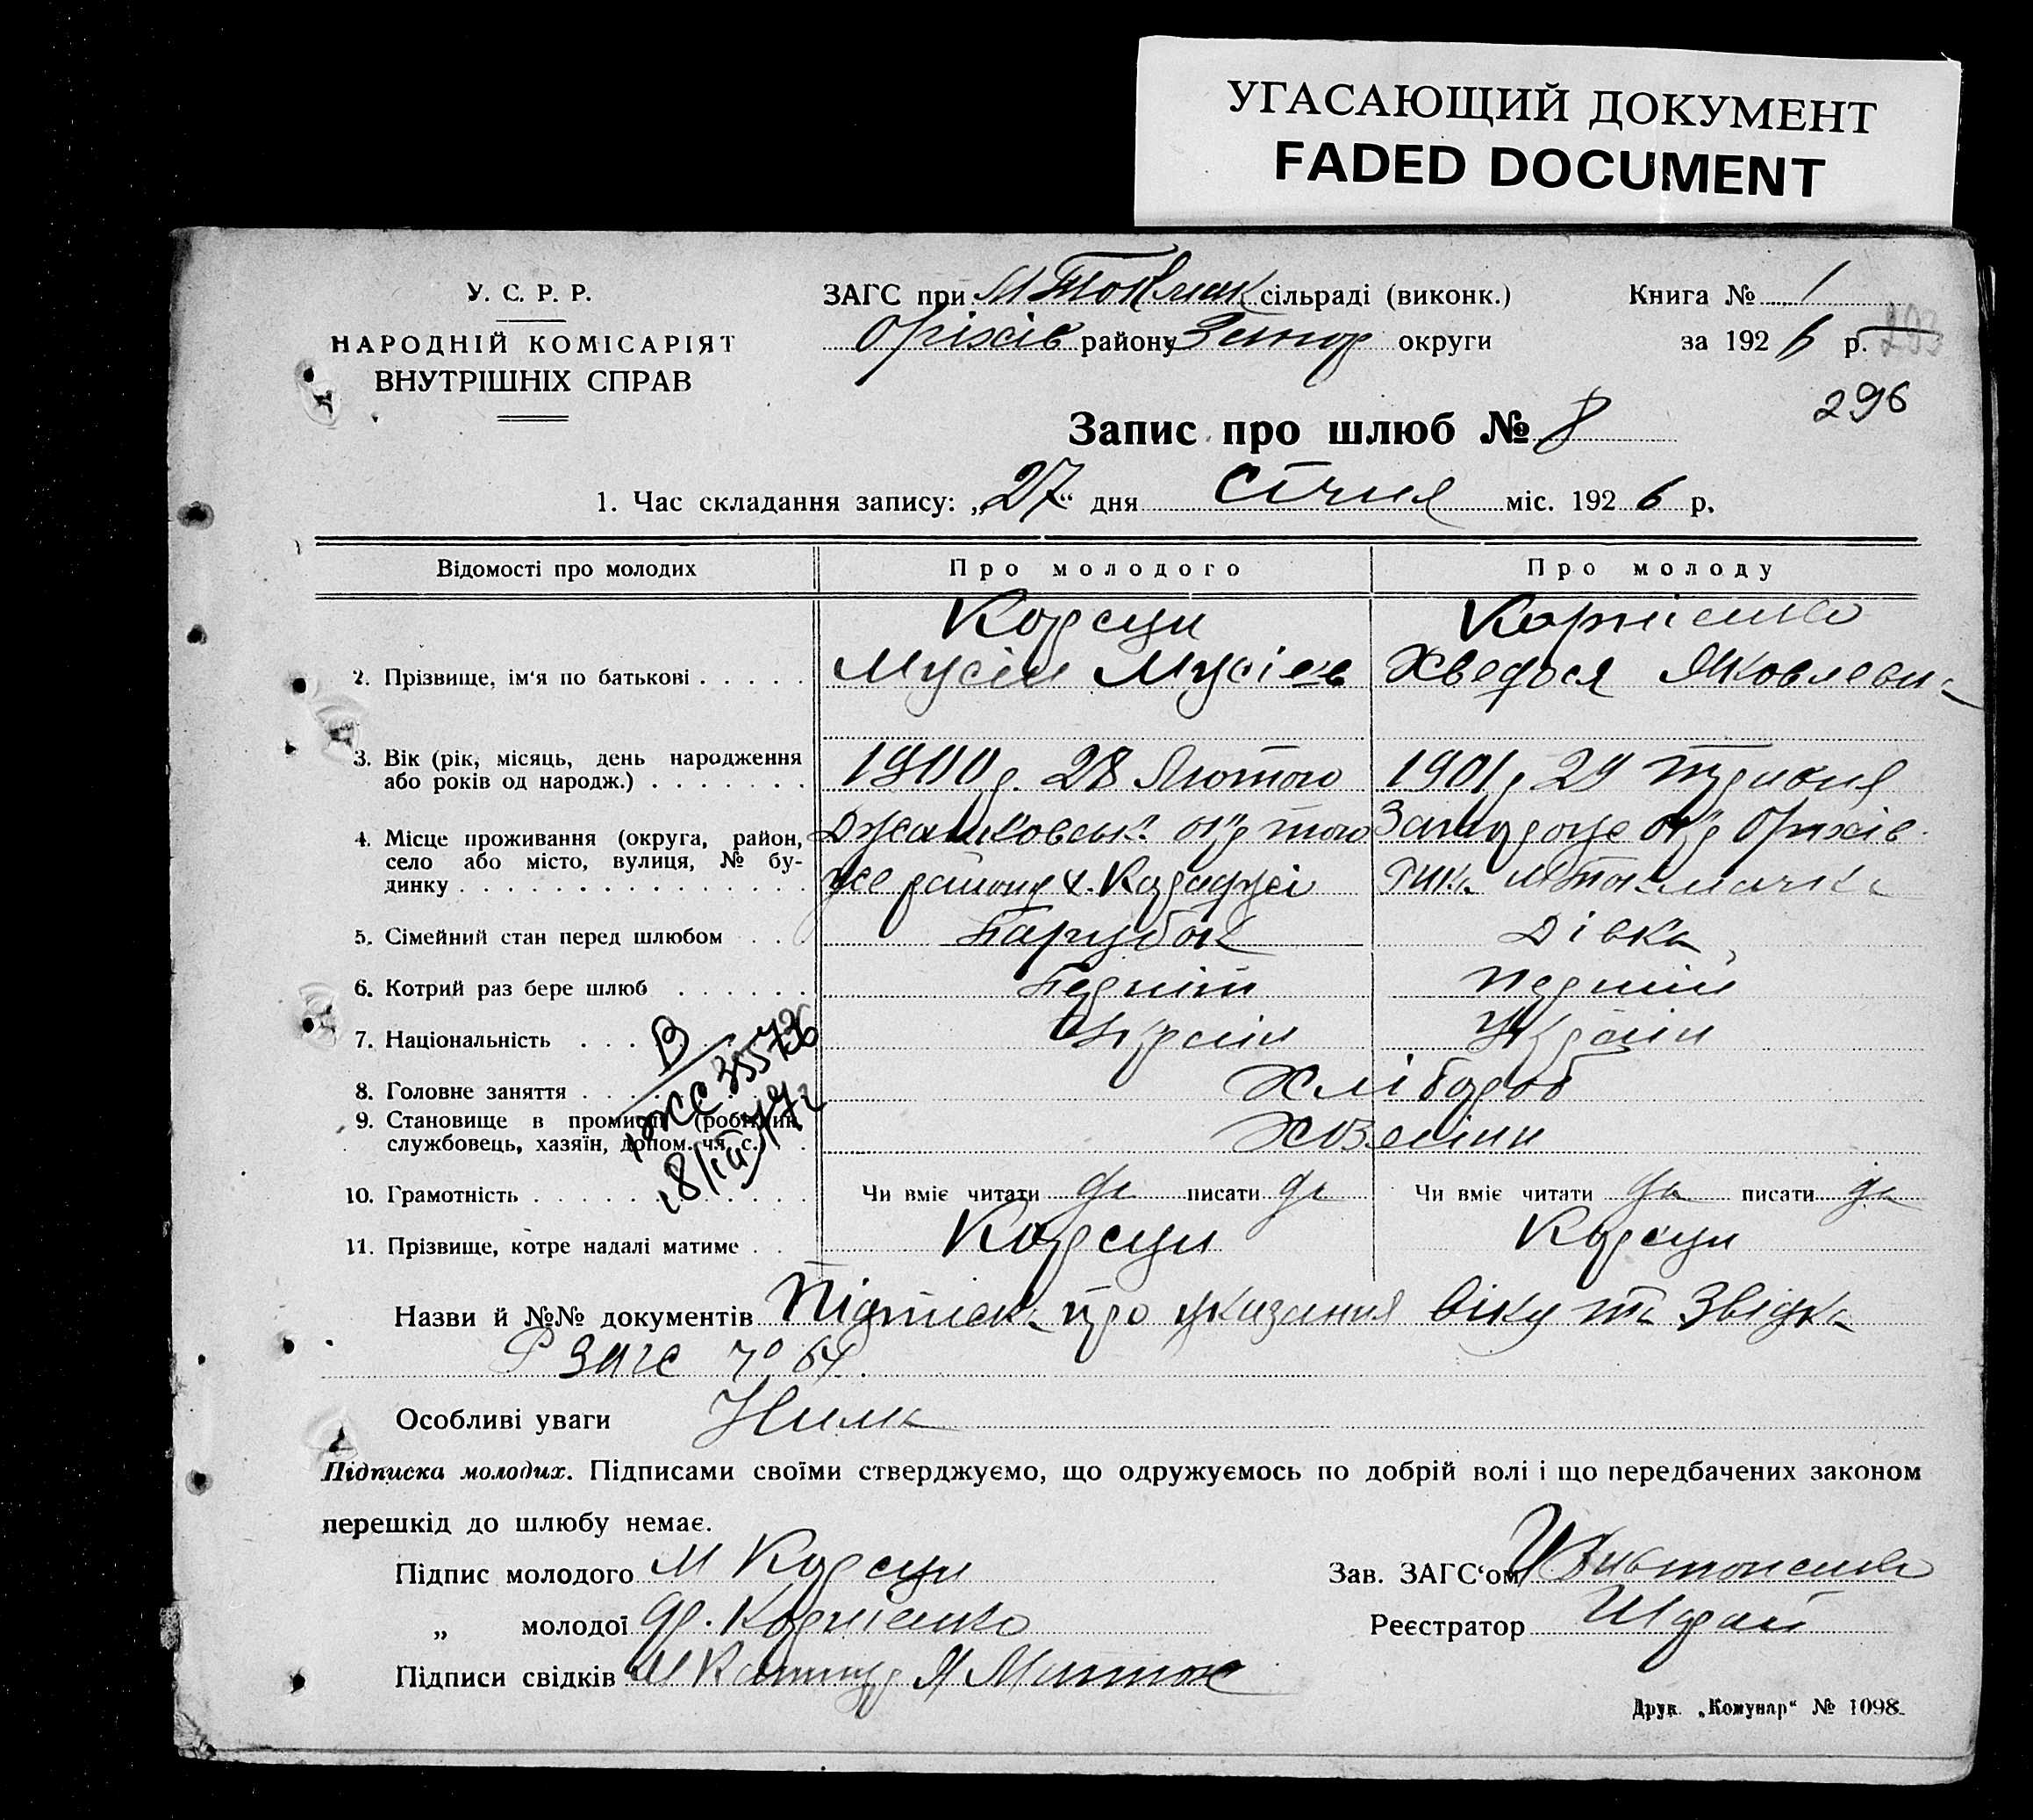 УГАСАЮЩИЙ ДОКУМЕНТ
FADED DOCUMENT
У. С. Р. Р.
НАРОДНІЙ КОМІСАРІЯТ
ВНУТРІШНІХ СПРАВ
ЗАГС при М Токмак сільраді (виконк.)
Оріхів району Запор округи
Книга № 1
за 1926 р.
293
296
Запис про шлюб № 8
1. Час складання запису: „27“ дня Січня міс. 1926 р.
Відомості про молодих Про молодого Про молоду
2. Прізвище, ім'я по батькові . . . . .
Корсун
Мусій Мусієв
Корнієнко
Хведося Яковлевн
3. Вік (рік, місяць, день народження
або років од народж.) . . . . . . .
1900 р. 28 Лютого
1901 р 29 Грудня
4. Місце проживання (округа, район,
село або місто, вулиця, № бу-
динку . . . . . . . . . . . . . . .
Джанковськ. окр того
же району х. Караджі
Запороже окр Оріхів
рик. М Токмачка
5. Сімейний стан перед шлюбом . . . Парубок Дівка
6. Котрий раз бере шлюб . . . . . . Перший Перший
7. Національність . . . . Украін Украін
8. Головне заняття . . . . Хлібороб
9. Становище в промислі (робітник,
службовець, хазяїн, допом. чл. с.) . Хозяїин
10. Грамотність . . . . . . . . . . . . Чи вміє читати да писати да Чи вміє читати да писати да
11. Прізвище, котре надалі матиме . . Корсун Корсун
Назви й №№ документів Підписка про указания віку та Звідка
Р Загс № 64
Особливі уваги Нима
Підписка молодих. Підписами своїми стверджуємо, що одружуємось по добрій волі і що передбачених законом
перешкід до шлюбу немає.
Підпис молодого М Корсун
„ молодої Хв. Корнієнко
Підписи свідків М
Зав. ЗАГС'ом
Реєстратор
Друк. „Комунар“ № 1098.